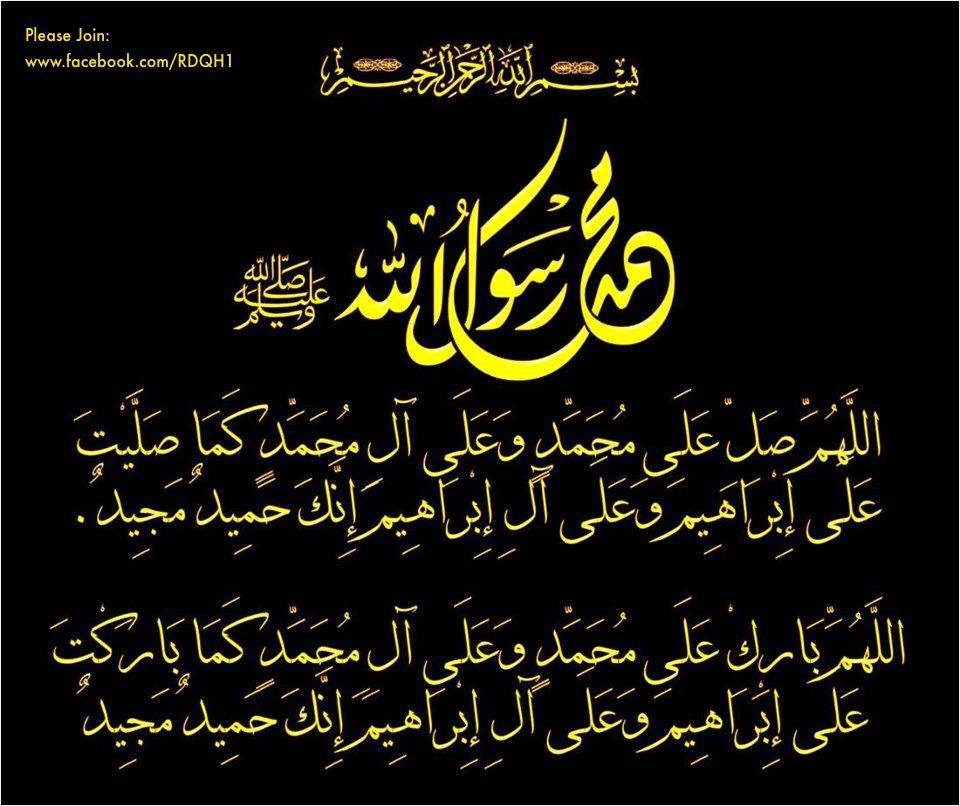 Please Join:
www.facebook.com/RDQH1
بسم الله الرحمن الرحيم
محمد رسول الله
صلى الله عليه وسلم
اللَّهُمَّ صَلِّ عَلَى مُحَمَّدٍ وَعَلَى آلِ مُحَمَّدٍ كَمَا صَلَّيْتَ
عَلَى إِبْرَاهِيمَ وَعَلَى آلِ إِبْرَاهِيمَ إِنَّكَ حَمِيدٌ مَجِيدٌ .
اللَّهُمَّ بَارِكْ عَلَى مُحَمَّدٍ وَعَلَى آلِ مُحَمَّدٍ كَمَا بَارَكْتَ
عَلَى إِبْرَاهِيمَ وَعَلَى آلِ إِبْرَاهِيمَ إِنَّكَ حَمِيدٌ مَجِيدٌ